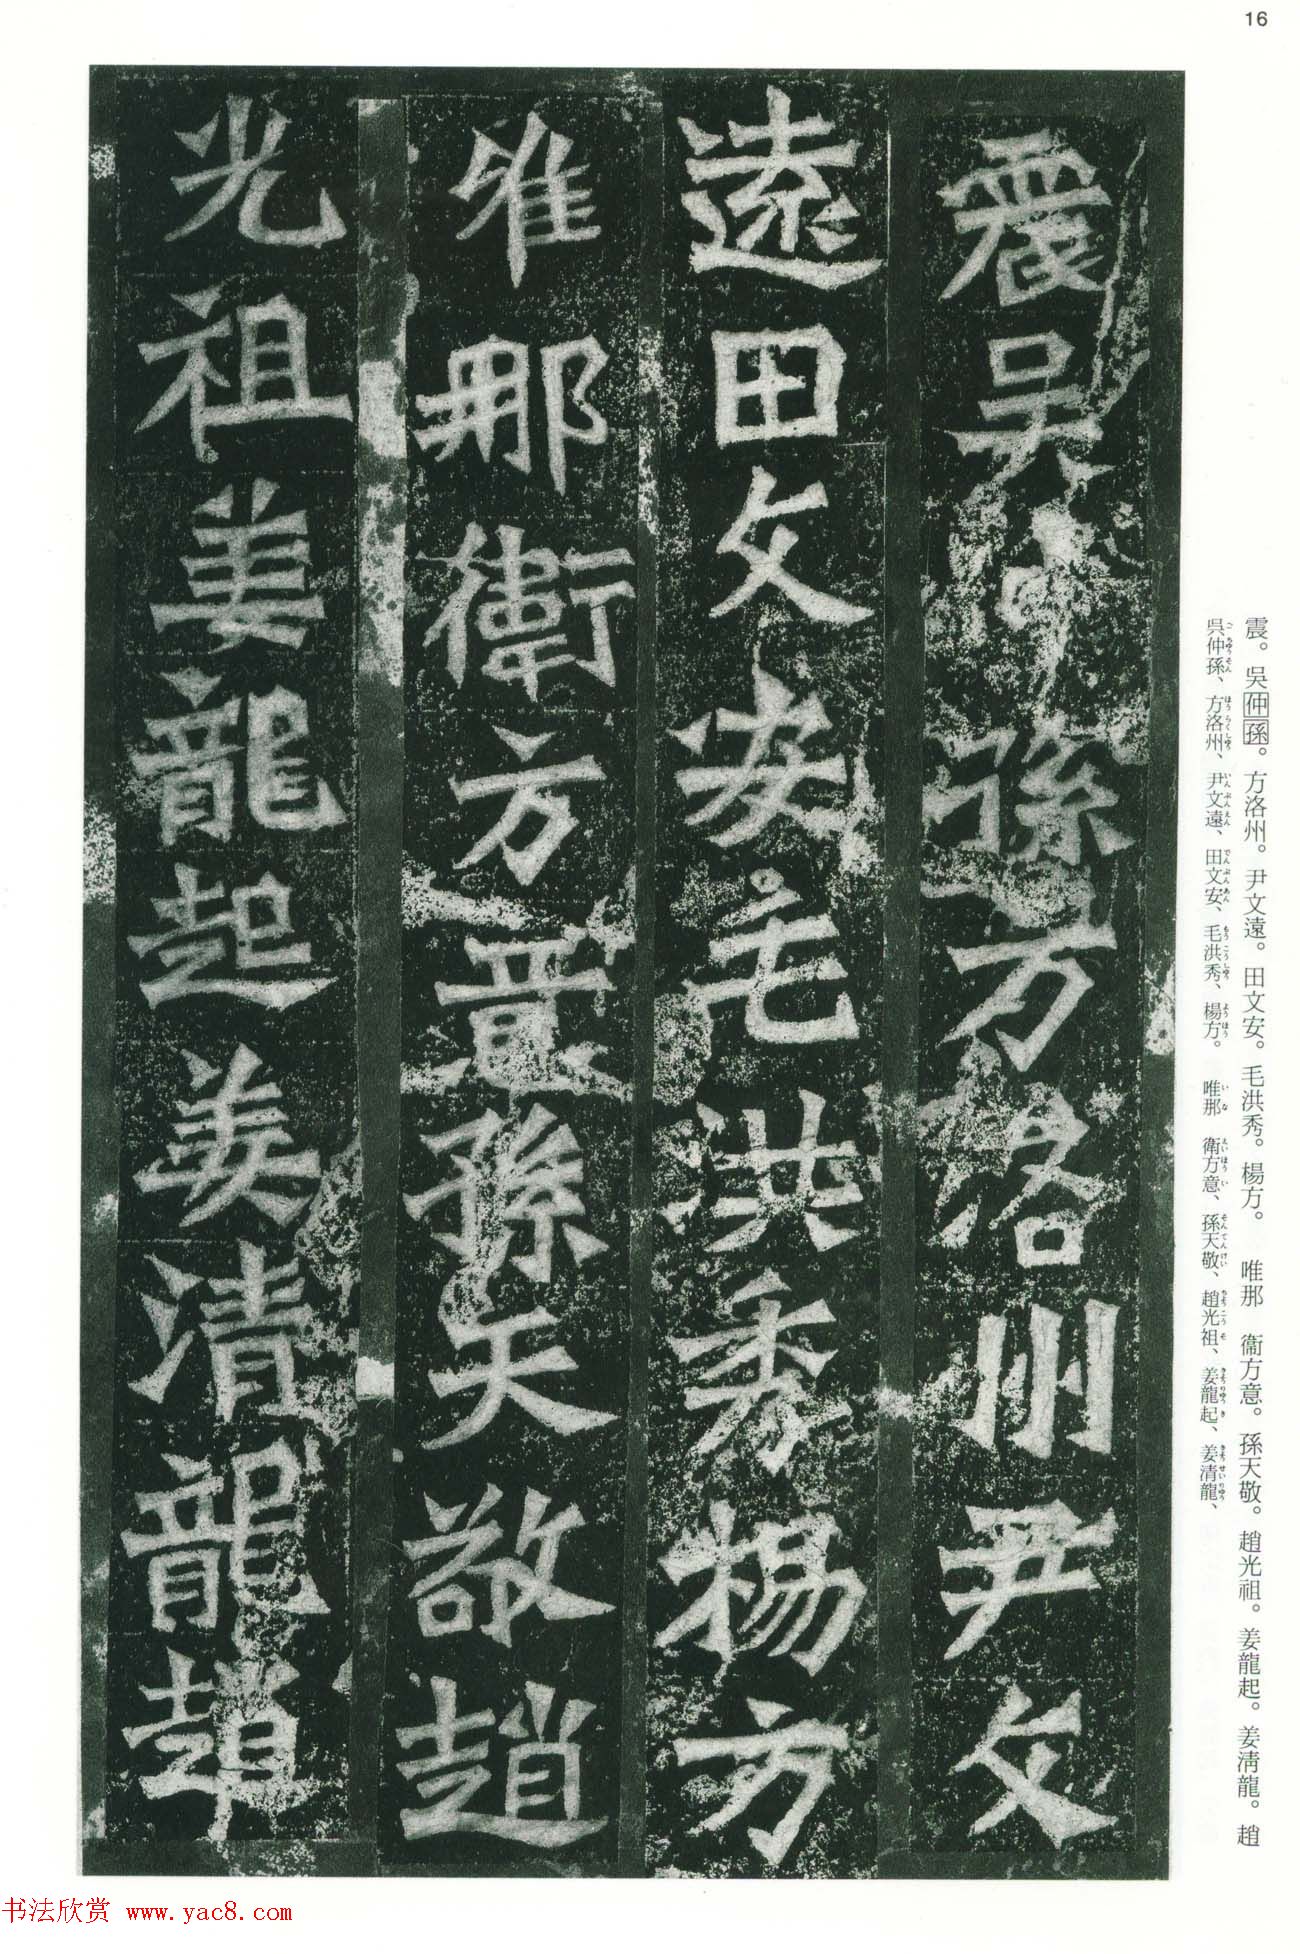 16
震吳仲孫方洛州尹文
遠田文安毛洪秀楊方
唯那衛方意孫天敬趙
光祖姜龍起姜清龍趙
震。吳仲孫。方洛州。尹文遠。田文安。毛洪秀。楊方。 唯那 衞方意。孫天敬。趙光祖。姜龍起。姜淸龍。趙
呉仲孫、方洛州、尹文遠、田文安、毛洪秀、楊方。 唯那 衛方意、孫天敬、趙光祖、姜龍起、姜清龍、
书法欣赏 www.yac8.com